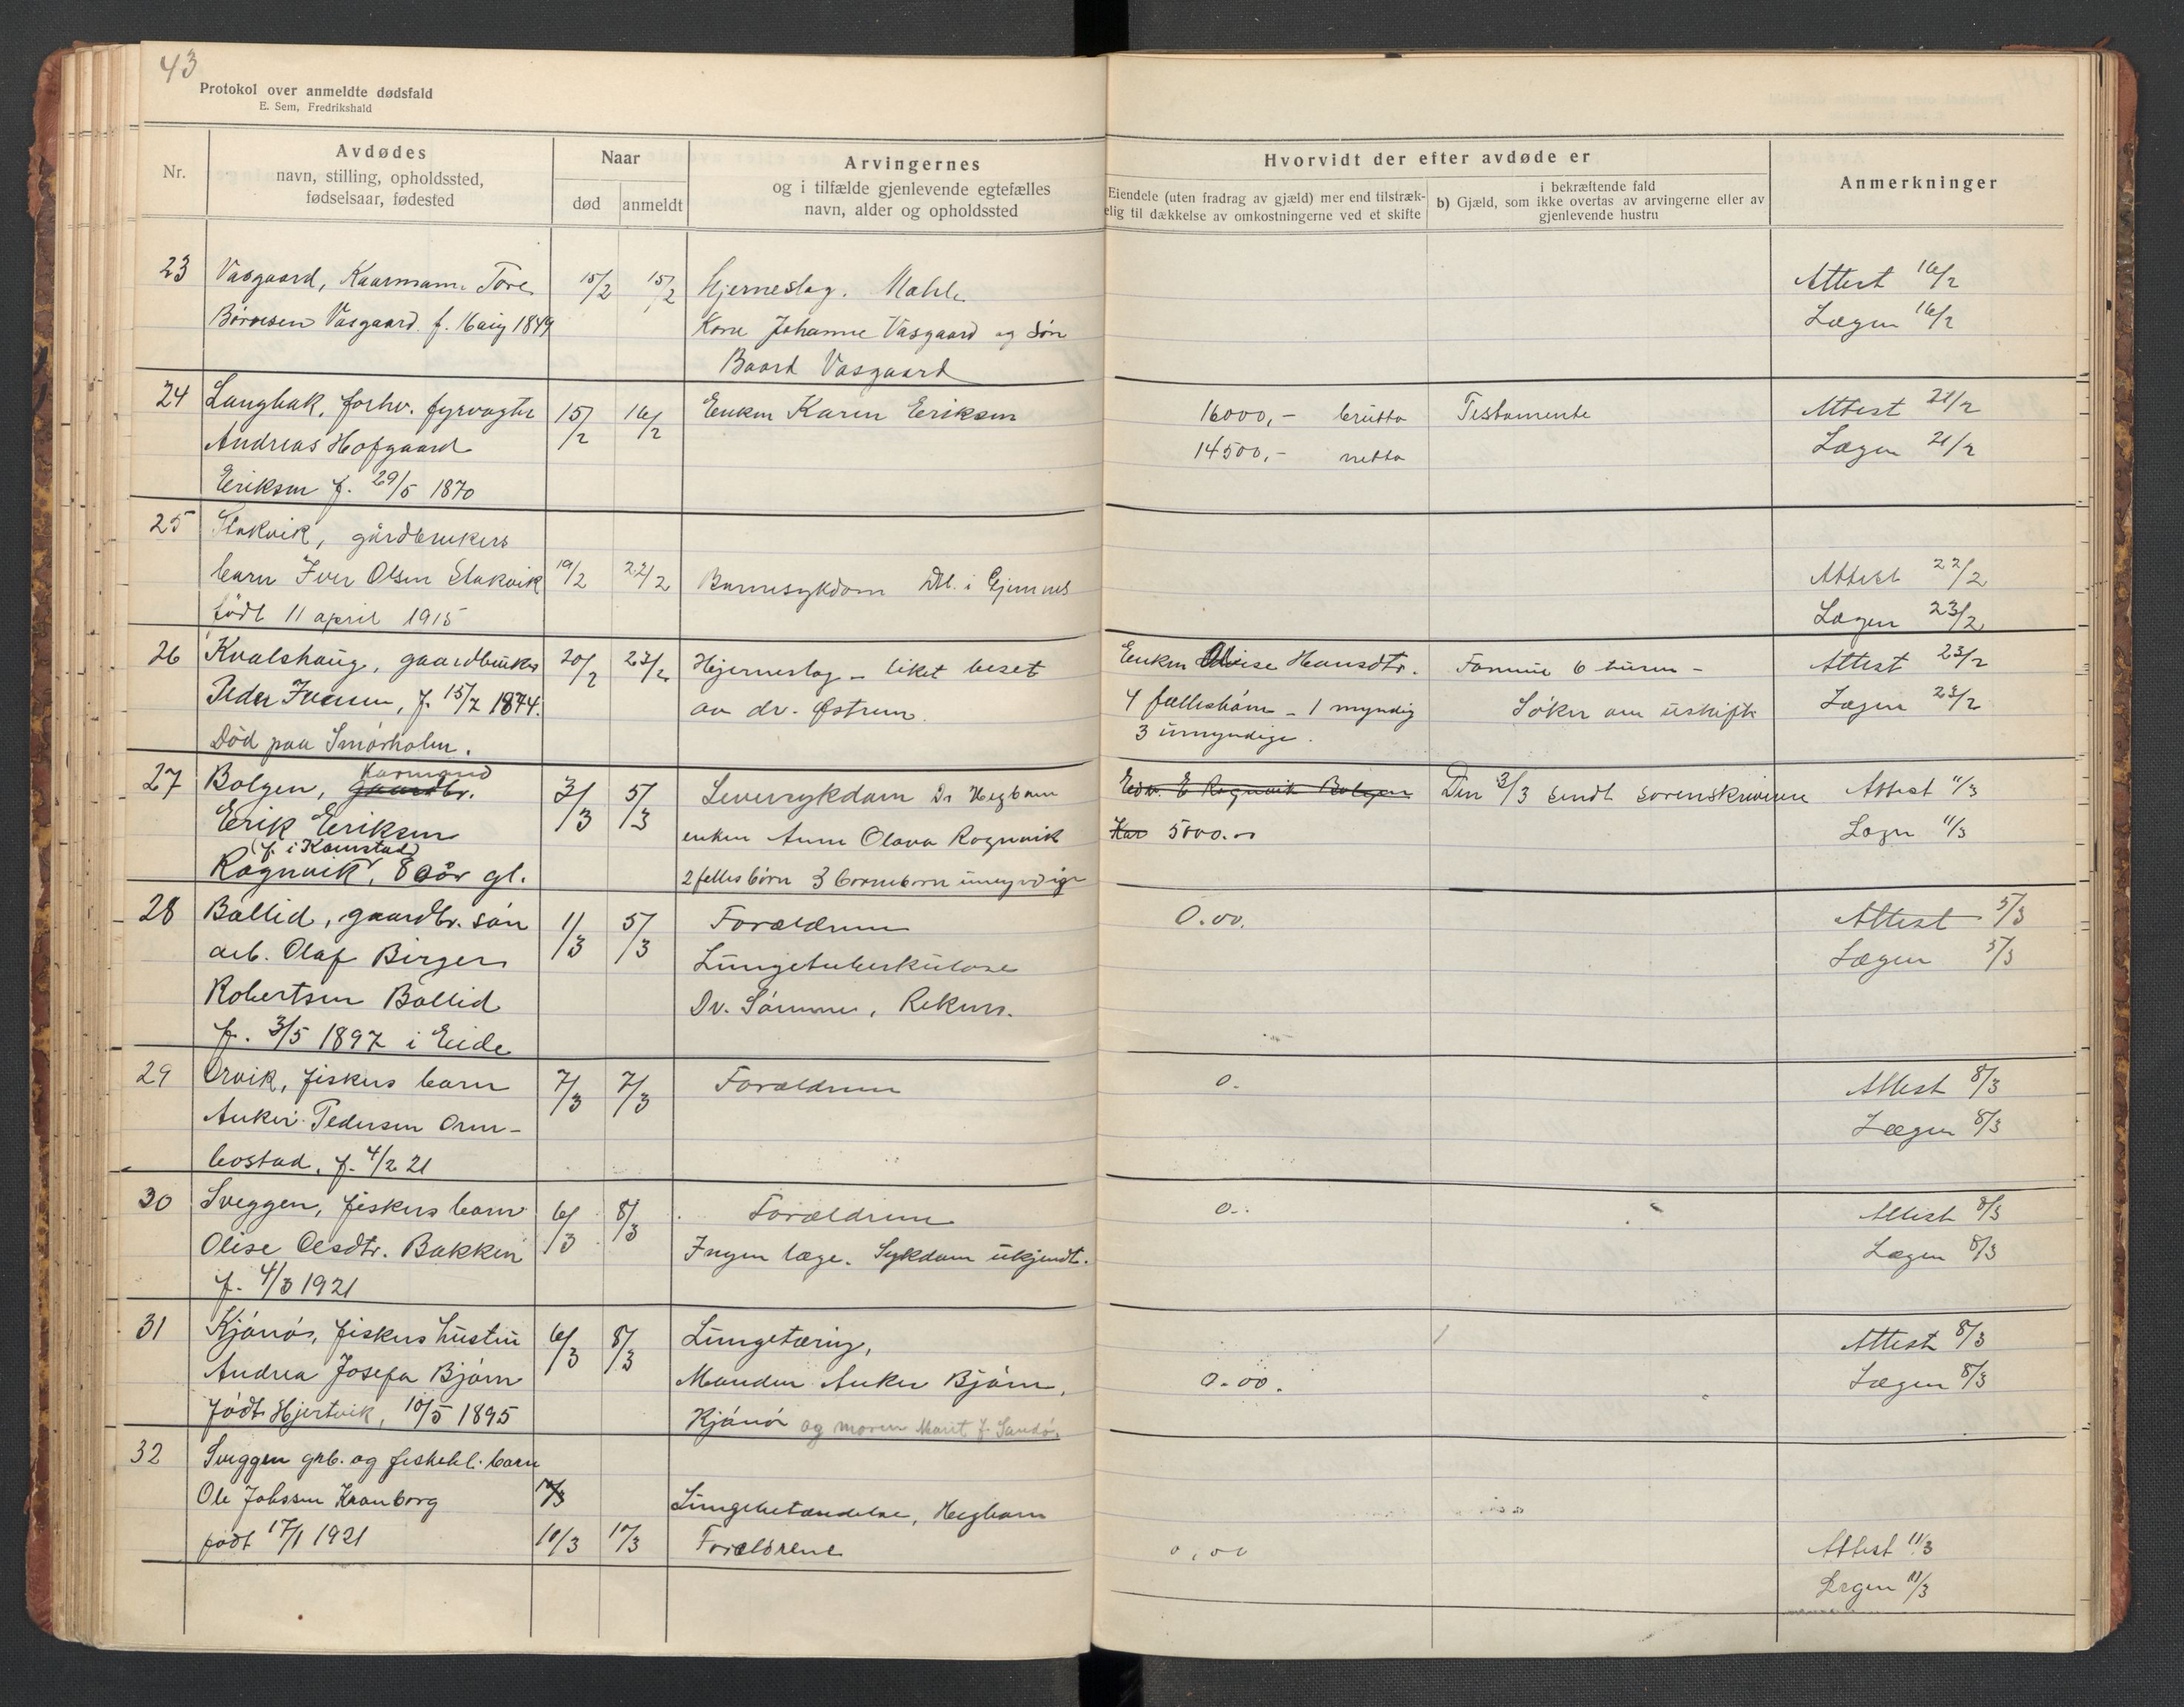 43
Protokol over anmeldte dødsfald
E. Sem, Fredrikshald
Nr.
Avdødes
navn, stilling, opholdssted,
fødselsaar, fødested
Naar
død
anmeldt
Arvingernes
og i tilfælde gjenlevende egtefælles
navn, alder og opholdssted
Hvorvidt der efter avdøde er
Eiendele (uten fradrag av gjæld) mer end tilstræk-
elig til dækkelse av omkostningerne ved et skifte
i bekræftende fald
b) Gjæld, som ikke overtas av arvingerne eller av
gjenlevende hustru
Anmerkninger
23 Vasgaard, Kaarmann Tore 15/2 15/2 Hjerneslag. Attest 16/2
Børresen Vasgaard f. 1849 Kone Johanne Vasgaard og søn Lægen 16/2
Baard Vasgaard
24 Langbak, forhv. fyrvogter 15/2 16/2 Enken Karen Eriksen 16000,- brutto Testamente Attest 21/2
Andreas Hofgaard 14500,- netto Lægen 21/2
Eriksen f. 29/5 1870
25 Stakvik, gårdbrukers
barn Iver Olsen Stakvik 19/2 22/2 Barnesykdom i Gjemnes Attest 22/2
født 11 april 1915 Lægen 23/2
26 Kvalshaug, gaardbruker 20/2 23/2 Hjerneslag - liket beset Enken Hansdtr. Formue 6 tusen - Attest 23/2
Peder Iversen, f. 15/7 1874. av dr. Østrem. 4 fællesbørn - 1 myndig Søker om uskifte Lægen 23/2
Død paa Smørholm. 3 umyndige.
27 Bolgen, gaardbr. Karmand 3/3 5/3 Leversykdom Dr Hegbom Edv. E Rognvik Bolgen Den 3/3 sendt sorenskriveren Attest 11/3
Erik Eriksen enken Anne Olava Rognvik Kar 5000.00 Lægen 11/3
(f. i Kornstad)
Rognvik, 80 år gl. 2 felles børn 3 barnebørn umyndige
28 Bollid, gaardbr. søn 11/3 5/3 Forældrene 0.00. Attest 5/3
arb. Olaf Birger Lungetuberkulose Lægen 5/3
Robertsen Bollid Dr. Sømme, Reknes.
f. 3/5 1897 i Eide
29 Orvik, fiskers barn 7/3 7/3 Forældrene 0. Attest 8/3
Anker Pedersen Orm- Lægen 8/3
bostad, f. 4/2 21
30 Sveggen, fiskers barn 6/3 8/3 Forældrene 0. Attest 8/3
Olise Olsdtr. Bakken Ingen læge. Sykdom ukjendt. Lægen 8/3
f. 4/3 1921
31 Kjønø, fiskers hustru 6/3 8/3 Lungetæring, Attest 8/3
Andrea Josefa Bjørn Manden Anker Bjørn, 0.00. Lægen 8/3
født Hjertvik, 10/5 1895 Kjønø og moren Marit f. Sandø.
32 Sveggen grb. og barn
Ole Johssen Kranborg Lungebetændelse, Hegbom
født 17/1 1921 10/3 10/3 Forældrene 0,00 Attest 11/3
Lægen 11/3